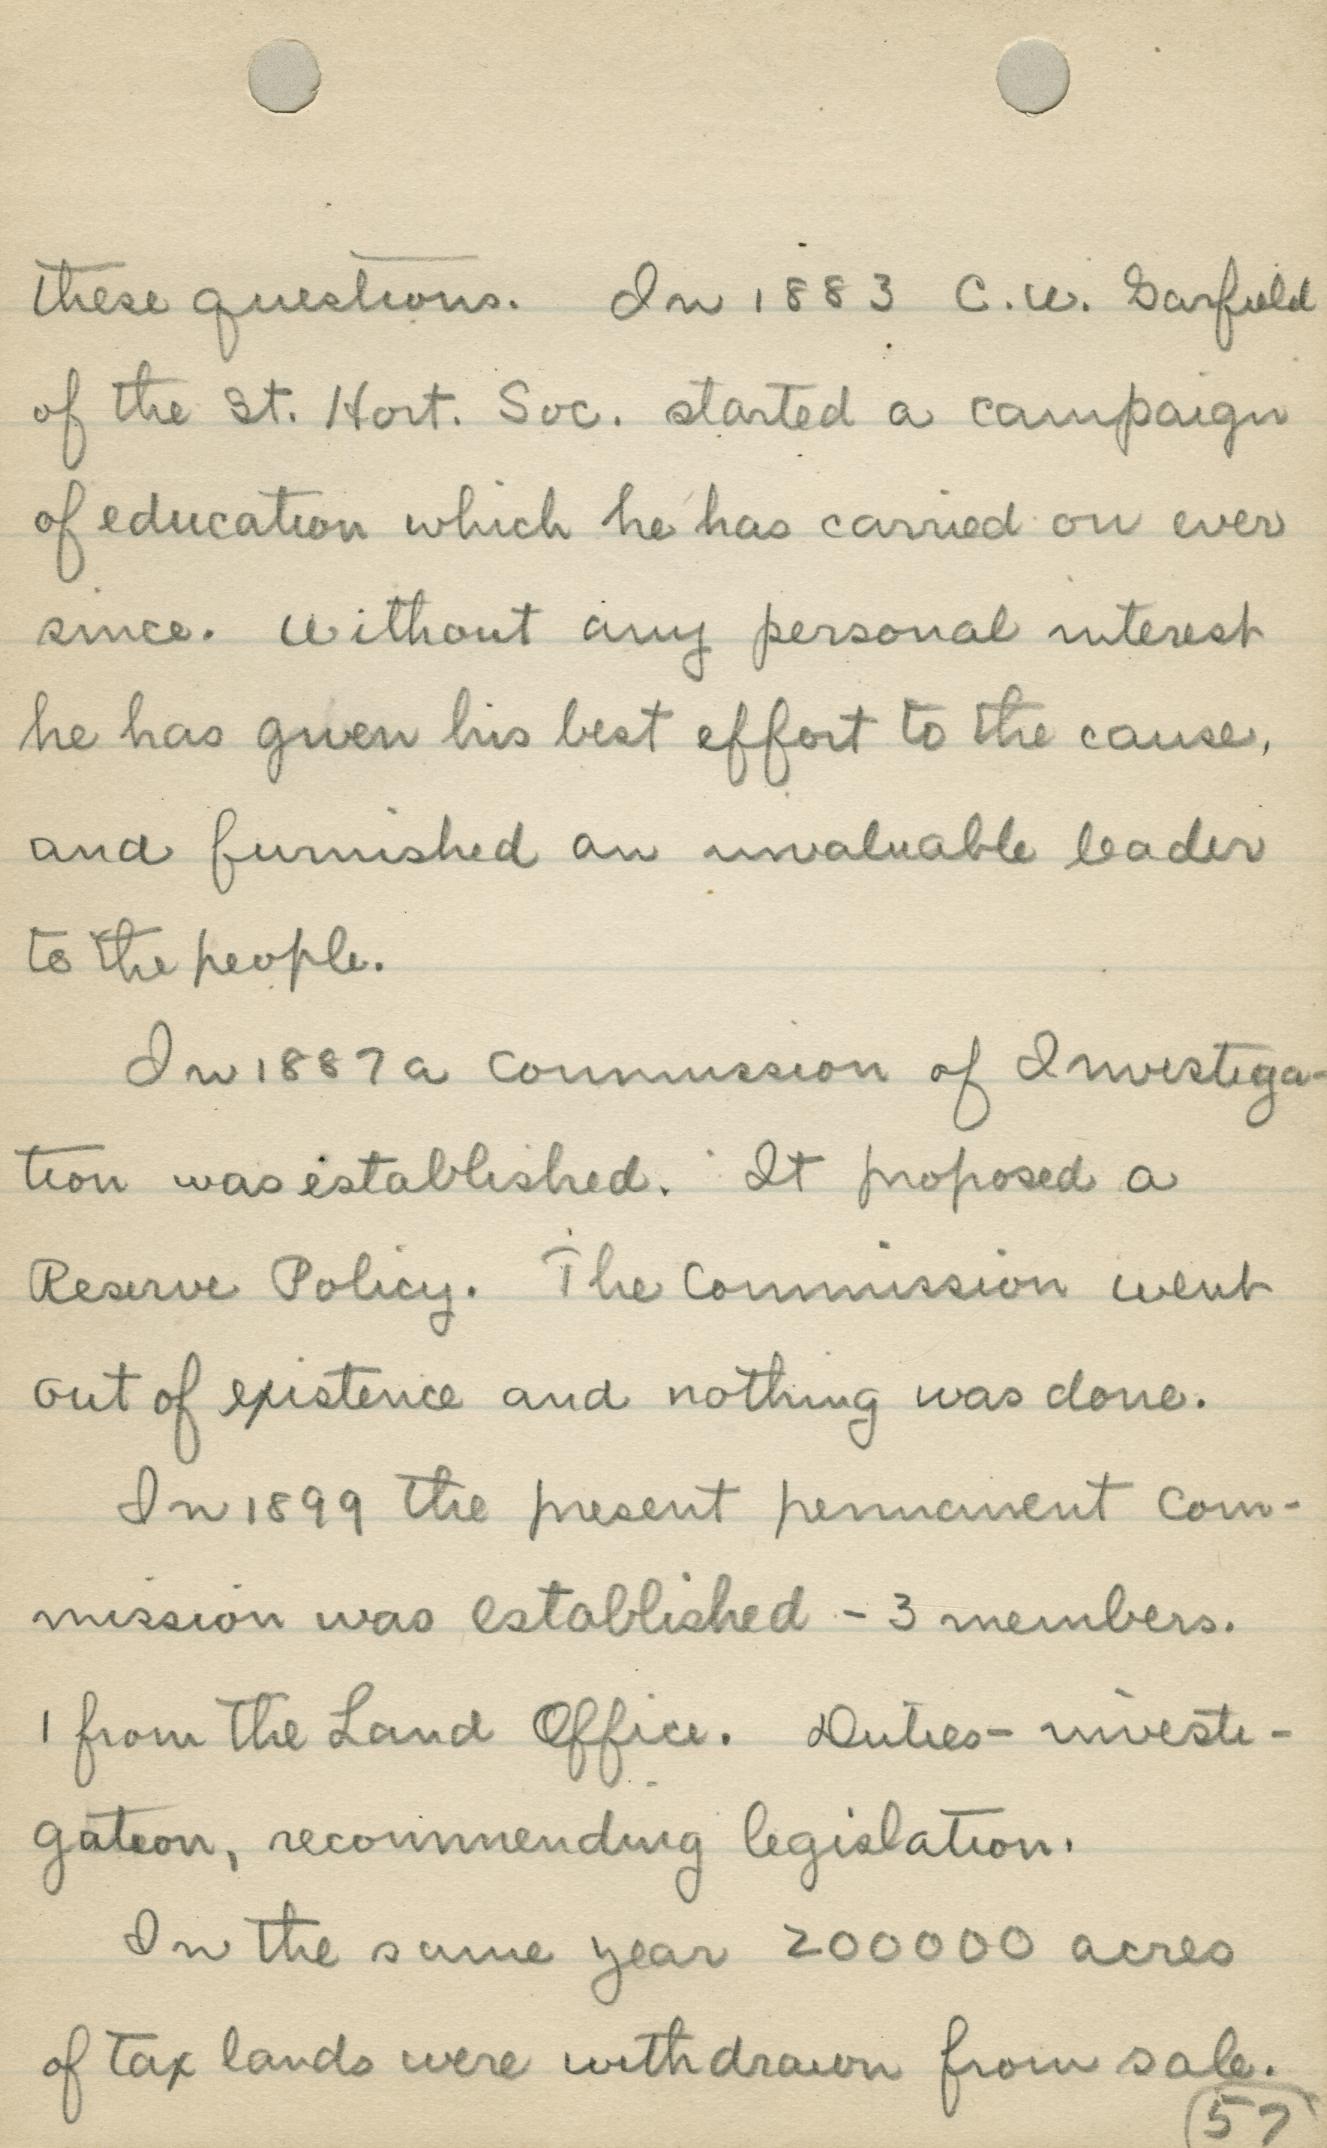 these questions. In 1883 C.W. Garfield
of the St. Hort. Soc. started a campaign
of education which he has carried on ever
since. Without any personal interest
he has given his best effort to the cause,
and furnished an invaluable leader
to the people.
In 1887 a Commission of Investiga-
tion was established. It proposed a
Reserve Policy. The Commission went
out of existence and nothing was done.
In 1899 the present permanent Com-
mission was established - 3 members.
1 from the Land Office. Duties - investi-
gation, recommending legislation.
In the same year 200000 acres
of tax lands were withdrawn from sale.
57